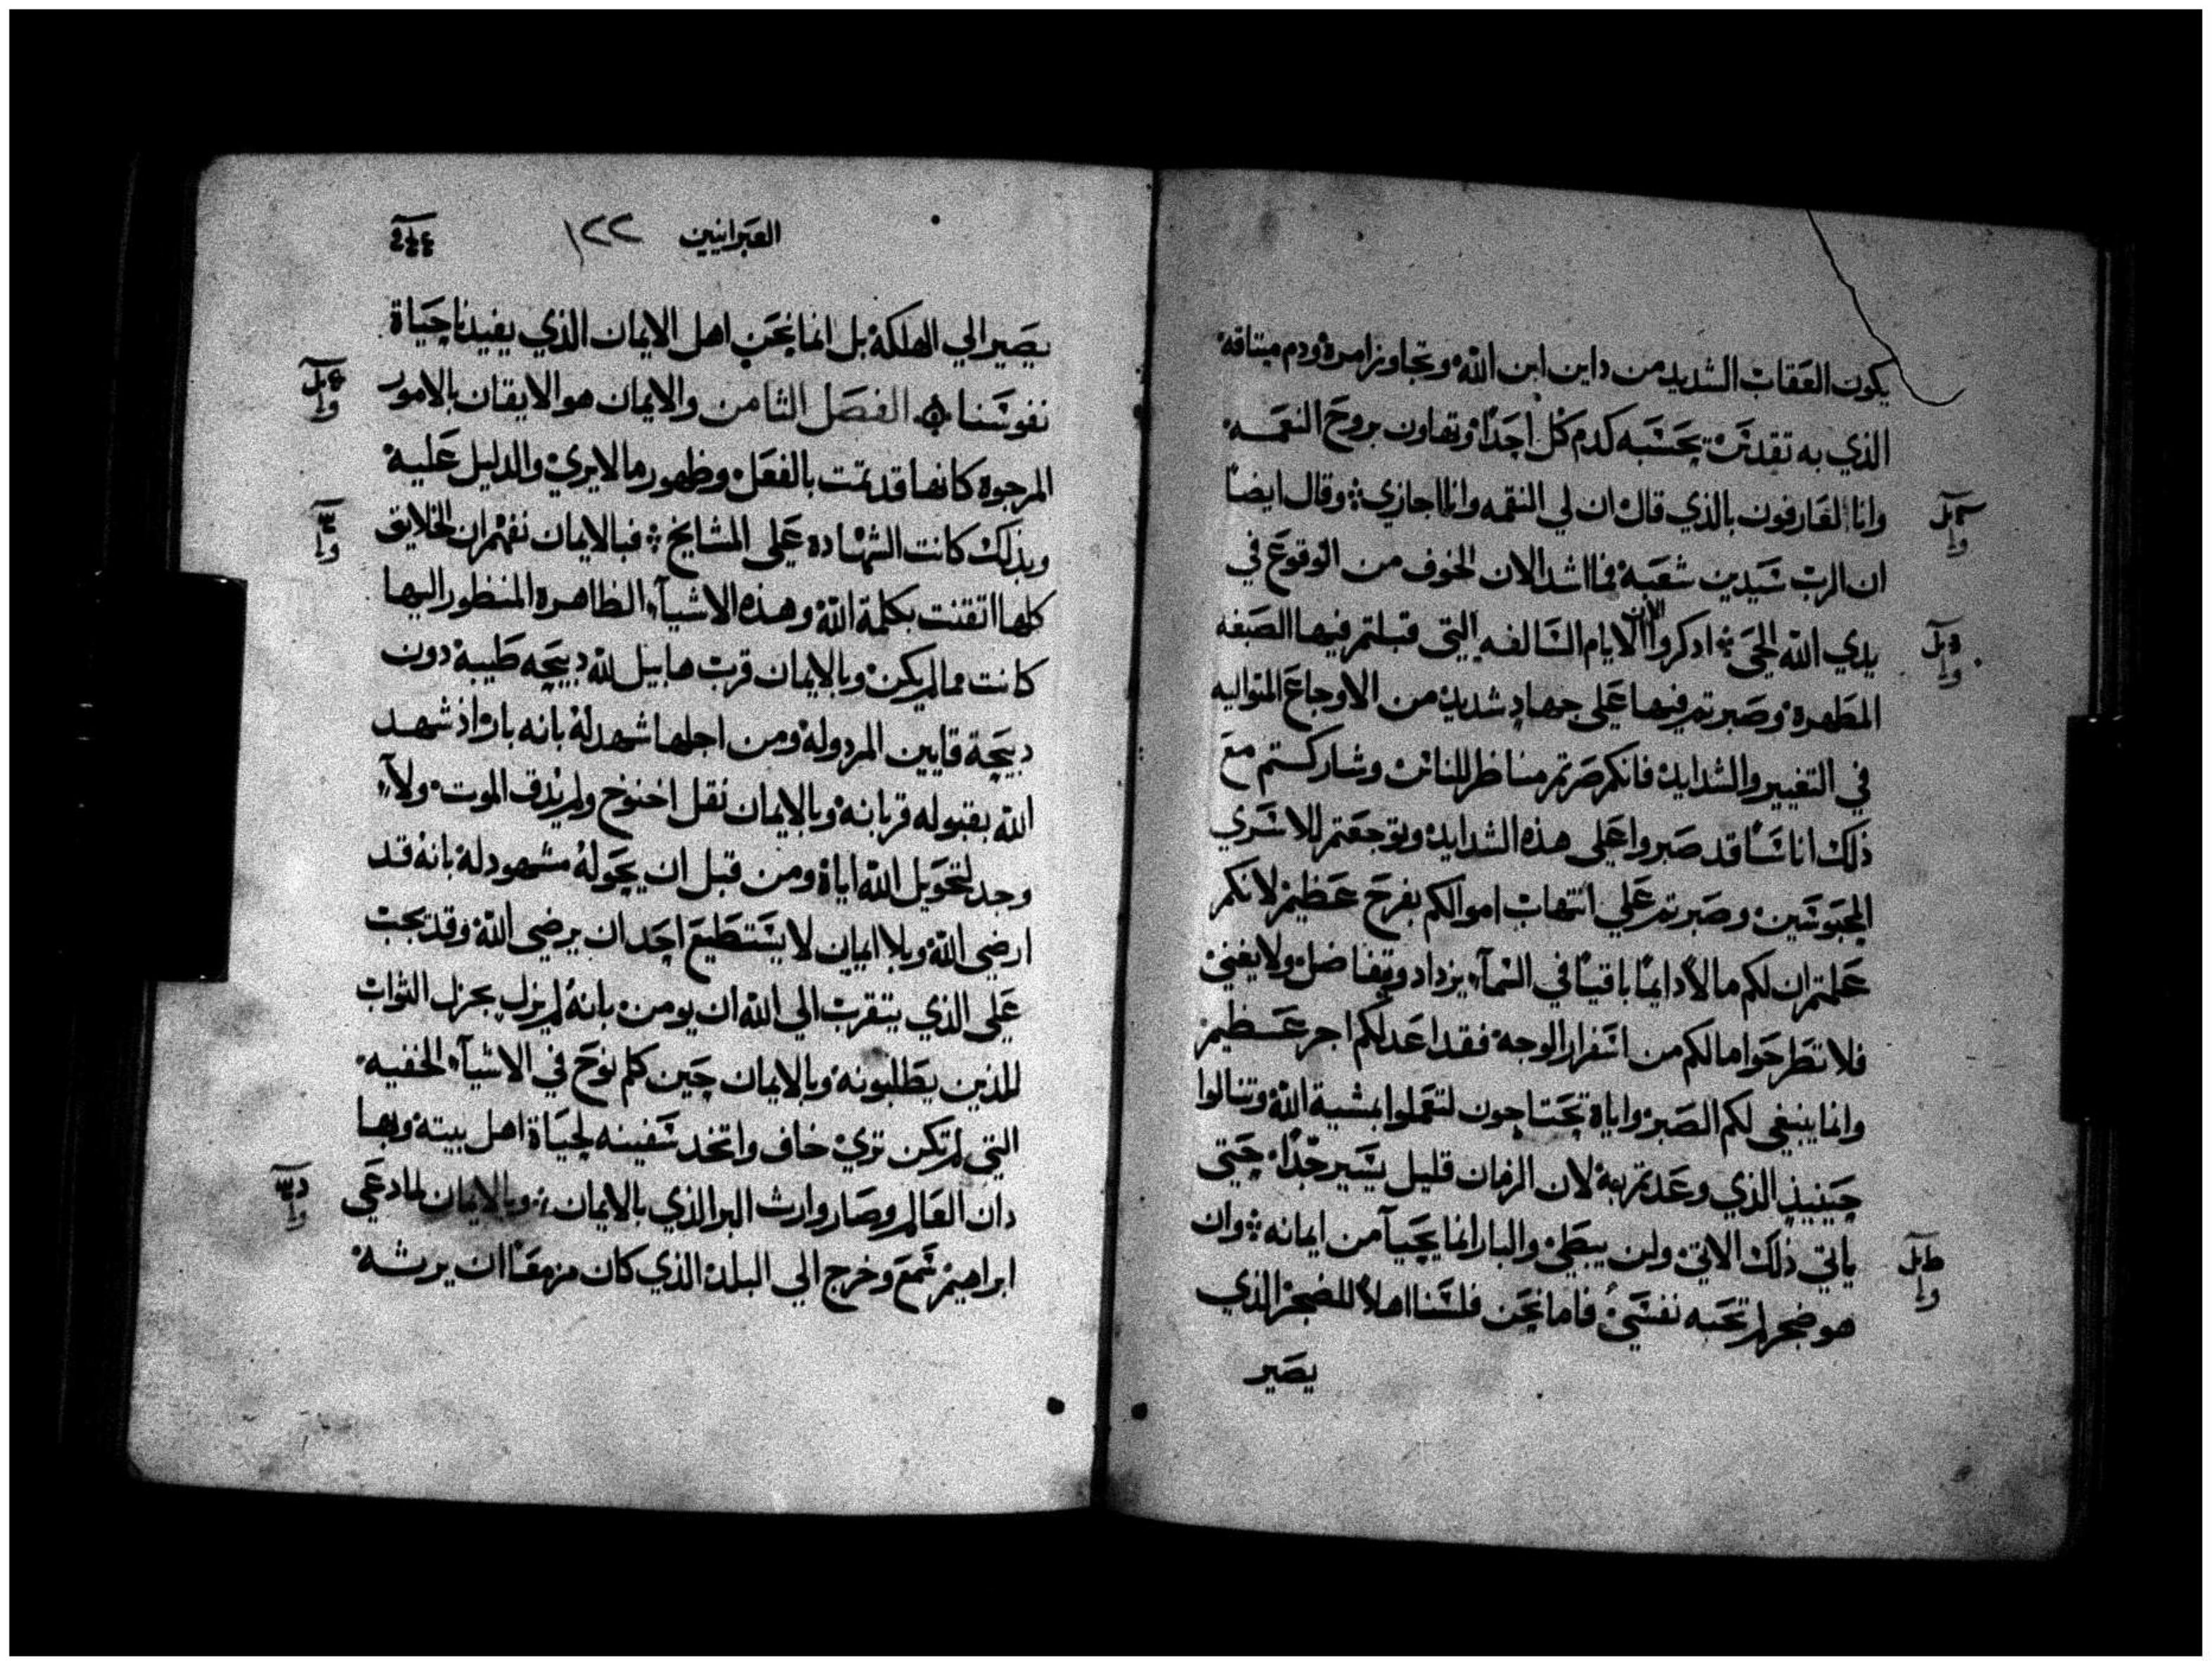 يكون العقاب الشديد من داين ابن الله وتجاوز امره ودم ميتاقه
الذي به تقدس يحسبه كدم كل احدا وتهاون بروح النعمه
وانا لعارفون بالذي قال ان لي النقمه وانا اجازي وقال ايضا
ان الرب سيدين شعبه فما اشد الان الخوف من الوقوع في
يدي الله الحي اذكروا الان الايام السالفه التي قبلتم فيها الصبغه
المطهره وصبرتم فيها على جهاد شديد من الاوجاع المتواليه
في التعيير والشدايد فانكم صرتم مناظر للناس وشاركتم مع
ذلك اناسا قد صبروا على هذه الشدايد وتوجعتم للاسري
المحبوسين وصبرتم علي انتهاب اموالكم بفرح عظيم لانكم
علمتم ان لكم مالا دايما باقيا في السمآء يزداد ويتفاضل ولا يفني
فلا تطرحوا مالكم من اسفرار الوجه فقد اعد لكم اجر عظيم
وانما ينبغي لكم الصبر واياه تحتاجون لتعملوا بمشية الله وتنالوا
حينيذ الذي وعدتم به لان الزمان قليل يسير جدا حتي
ياتي ذلك الاتي ولن يبطي والبار انما يحيآ من ايمانه وان
هو ضجر لم تحبه نفسي فاما نحن فلسنا اهلا للضجر الذي
يصير
العبرانيين ١٢٢
يصير الي الهلكة بل انما نحن اهل الايمان الذي يفيدنا حياة
نفوسنا الفصل الثامن والايمان هو الايقان بالامور
المرجوة كانها قد تمت بالفعل وظهور ما لا يري والدليل عليه
وبذلك كانت الشهاده علي المشايخ فبالايمان نفهم ان الخلايق
كلها اتقنت بكلمة الله وهذه الاشيآء الظاهره المنظور اليها
كانت مما لم يكن وبالايمان قرب هابيل لله دبيحه طيبة دون
دبيحة قايين المردوله ومن اجلها شهد له بانه بار اذ شهد
الله بقبوله قربانه وبالايمان نقل اخنوخ ولم يذق الموت ولا
وجد لتحويل الله اياه ومن قبل ان يحوله مشهود له بانه قد
ارضي الله وبلا ايمان لا يستطيع احد ان يرضي الله وقد يجب
علي الذي يتقرب الي الله ان يومن بانه لم يزل يجزل الثواب
للذين يطلبونه وبالايمان حين كلم نوح في الاشيآء الخفيه
التي لم تكن تري خاف واتخد سفينه لحياة اهل بيته وبها
دان العالم وصار وارث البر الذي بالايمان وبالايمان لما دعي
ابراهيم سمع وخرج الي البلد الذي كان مزمعا ان يرثه